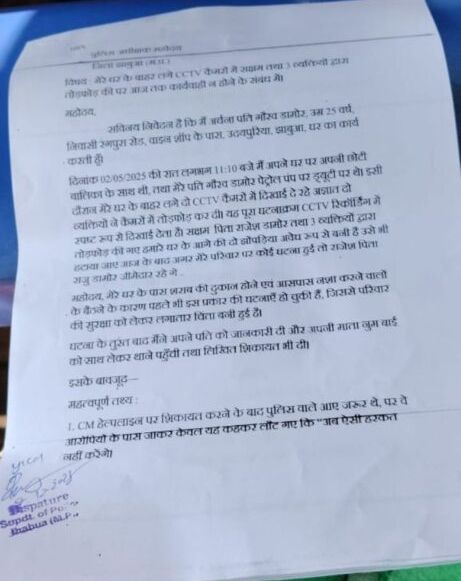 पुलिस अधीक्षक महोदय
जिला झाबुआ (म.प्र.)
विषय : मेरे घर के बाहर लगे CCTV कैमरों में सक्षम तथा 3 व्यक्तियों द्वारा
तोड़फोड़ की पर आज तक कार्यवाही न होने के संबंध में।
महोदय,
सविनय निवेदन है कि मैं अर्चना पति गौरव डामोर, उम्र 25 वर्ष,
निवासी रंगपुरा रोड, वाइन शॉप के पास, उदयपुरिया, झाबुआ, घर का कार्य
करती हूँ।
दिनांक 02/05/2025 की रात लगभग 11:10 बजे मैं अपने घर पर अपनी छोटी
बालिका के साथ थी, तथा मेरे पति गौरव डामोर पेट्रोल पंप पर ड्यूटी पर थे। इसी
दौरान मेरे घर के बाहर लगे दो CCTV कैमरों में दिखाई दे रहे अज्ञात दो
व्यक्तियों ने कैमरों में तोड़फोड़ कर दी। यह पूरा घटनाक्रम CCTV रिकॉर्डिंग में
स्पष्ट रूप से दिखाई देता है। सक्षम पिता राजेश डामोर तथा 3 व्यक्तियों द्वारा
तोड़फोड़ की गए हमारे घर के आगे की दो झोपड़िया अवैध रूप से बनी है उसे भी
हटाया जाए आज के बाद अगर मेरे परिवार पर कोई घटना हुई तो राजेश पिता
राजु डामोर जीमेदार रहे गे .
महोदय, मेरे घर के पास शराब की दुकान होने एवं आसपास नशा करने वालों
के बैठने के कारण पहले भी इस प्रकार की घटनाएँ हो चुकी हैं, जिससे परिवार
की सुरक्षा को लेकर लगातार चिंता बनी हुई है।
घटना के तुरंत बाद मैंने अपने पति को जानकारी दी और अपनी माता नुम बाई
को साथ लेकर थाने पहुँची तथा लिखित शिकायत भी दी।
इसके बावजूद—
महत्वपूर्ण तथ्य :
1. CM हेल्पलाइन पर शिकायत करने के बाद पुलिस वाले आए जरूर थे, पर वे
आरोपियों के पास जाकर केवल यह कहकर लौट गए कि "अब ऐसी हरकत
नहीं करेंगे।
Supdt. of Po
Jhabua (M.P.